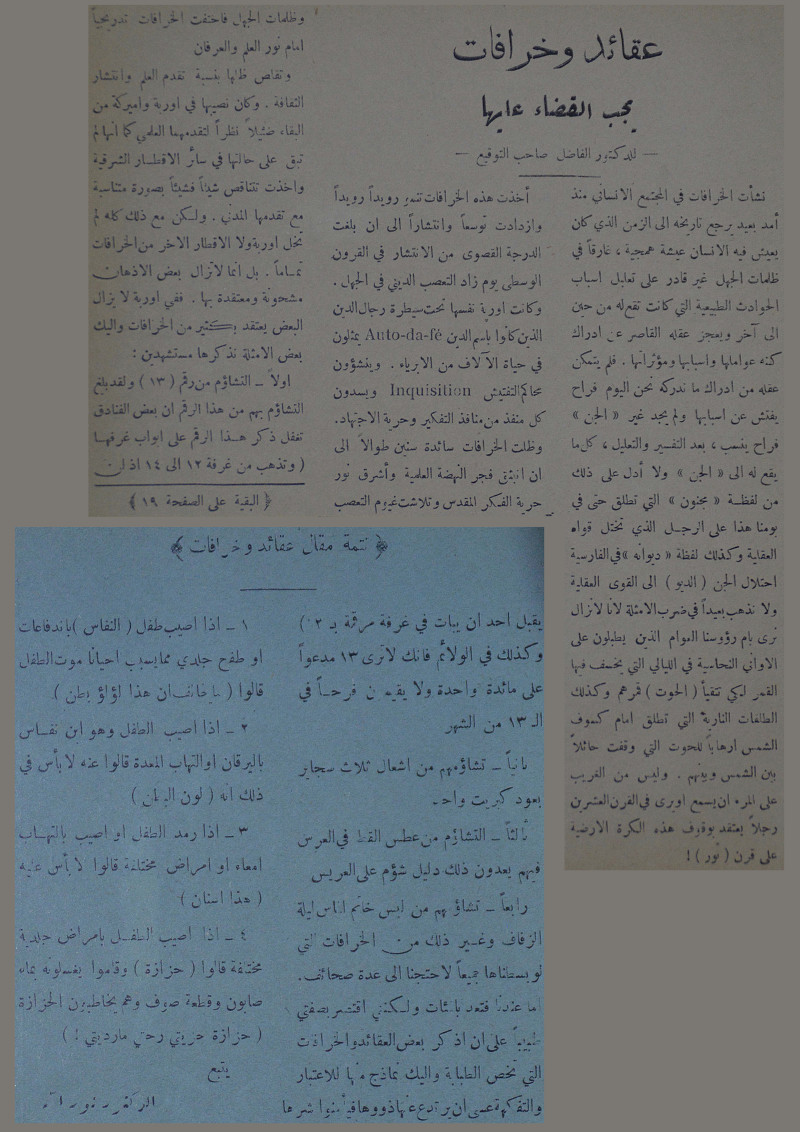 عقائد وخرافات
يجب القضاء عليها
— للدكتور الفاضل صاحب التوقيع —
نشأت الخرافات في المجتمع الانساني منذ
أمد بعيد يرجع تاريخه الى الزمن الذي كان
يعيش فيه الانسان عيشة همجية ، غارقاً في
ظلمات الجهل غير قادر على تعليل اسباب
الحوادث الطبيعية التي كانت تقع له من حين
الى آخر ويعجز عقله القاصر عن ادراك
كنه عواملها واسبابها ومؤثراتها . فلم يتمكن
عقله من ادراك ما ندركه نحن اليوم فراح
يفتش عن اسبابها ولم يجد غير « الجن »
فراح ينسب ، بعد التفسير والتعليل ، كل ما
يقع له الى « الجن » ولا أدل على ذلك
من لفظة « مجنون » التي تطلق حتى في
يومنا هذا على الرجل الذي تختل قواه
العقلية وكذلك لفظة « ديوانه » في الفارسية
احتلال الجن ( الديو ) الى القوى العقلية
ولا نذهب بعيداً في ضرب الامثلة لانا لانزال
نرى بأم رؤوسنا العوام الذين يطبلون على
الاواني النحاسية في الليالي التي يخسف فيها
القمر لكي تتقيأ ( الحوت ) قمرهم وكذلك
الطلقات النارية التي تطلق امام كسوف
الشمس ارهاباً للحوت التي وقفت حائلاً
بين الشمس وبينهم . وليس من الغريب
على المرء ان يسمع اويرى في القرن العشرين
رجلاً يعتقد بوقوف هذه الكرة الارضية
على قرن ( ثور ) !
أخذت هذه الخرافات تنمو رويداً رويداً
وازدادت توسعاً وانتشاراً الى ان بلغت
الدرجة القصوى من الانتشار في القرون
الوسطى يوم زاد التعصب الديني في الجهل .
وكانت اوربة نفسها تحت سيطرة رجال الدين
الذين كانوا باسم الدين Auto-da-fé يمثلون
في حياة الآلاف من الابرياء . وينشؤون
محاكم التفتيش Inquisition ويسدون
كل منفذ من منافذ التفكير وحرية الاجتهاد.
وظلت الخرافات سائدة سنين طوالاً الى
ان انبثق فجر النهضة العلمية وأشرق نور
حرية الفكر المقدس وتلاشت غيوم التعصب
وظلمات الجهل فاختفت الخرافات تدريجياً
امام نور العلم والعرفان
وتقلص ظلها بنسبة تقدم العلم وانتشار
الثقافة . وكان نصيبها في اوربة واميركة من
البقاء ضئيلاً نظراً لتقدمهما العلمي كما انها لم
تبق على حالتها في سائر الاقطار الشرقية
واخذت تتناقص شيئاً فشيئاً بصورة متناسبة
مع تقدمها المدني . ولكن مع ذلك كله لم
تخل اوربة ولا الاقطار الاخر من الخرافات
تماماً . بل انما لاتزال بعض الاذهان
مشحونة ومعتقدة بها . ففي اوربة لا يزال
البعض يعتقد بكثير من الخرافات واليك
بعض الامثلة نذكرها مستشهدين :
اولاً – التشاؤم من رقم ( ١٣ ) ولقد بلغ
التشاؤم بهم من هذا الرقم ان بعض الفنادق
تغفل ذكر هذا الرقم على ابواب غرفها
( وتذهب من غرفة ١٢ الى ١٤ اذ لن
﴿ البقية على الصفحة ١٩ ﴾
﴿ تتمة مقال عقائد وخرافات ﴾
يقبل احد ان يبات في غرفة مرقمة بـ
وكذلك في الولائم فانك لاترى ١٣ مدعواً
على مائدة واحدة ولا يقيمون فرحاً في
الـ ١٣ من الشهر
ثانياً – تشاؤمهم من اشعال ثلاث سجاير
بعود كبريت واحد
ثالثاً – التشاؤم من عطس القط في العرس
فهم يعدون ذلك دليل شؤم على العريس
رابعاً – تشاؤمهم من لبس خاتم الماس ليلة
الزفاف وغير ذلك من الخرافات التي
لو بسطناها جميعاً لاحتجنا الى عدة صحائف.
اما عندنا فتعد بالمئات ولكنني اقتصر بصفتي
طبيباً على ان اذكر بعض العقائد والخرافات
التي تخص الطبابة واليك نماذج منها للاعتبار
والتفكهة عسى ان يرتدع عنها ذووها فيأمنوا شرها
١ – اذا اصيب طفل ( النفاس ) باندفاعات
او طفح جلدي مما يسبب احيانا موت الطفل
قالوا ( ان هذا لؤلؤ بطن )
٢ – اذا اصيب الطفل وهو ابن نفاس
باليرقان او التهاب المعدة قالوا عنه لا بأس في
ذلك انه ( لون )
٣ – اذا رمد الطفل او اصيب بالتهاب
امعاء او امراض مختلفة قالوا لا بأس عليه
( هذا اسنان )
٤ – اذا اصيب الطفل بامراض جلدية
مختلفة قالوا ( حزازة ) وقاموا يغسلونه بماء
صابون وقطعة صوف وهم يخاطبون الحزازة
( حزازة حريتي رحتي مارديتي ! )
يتبع